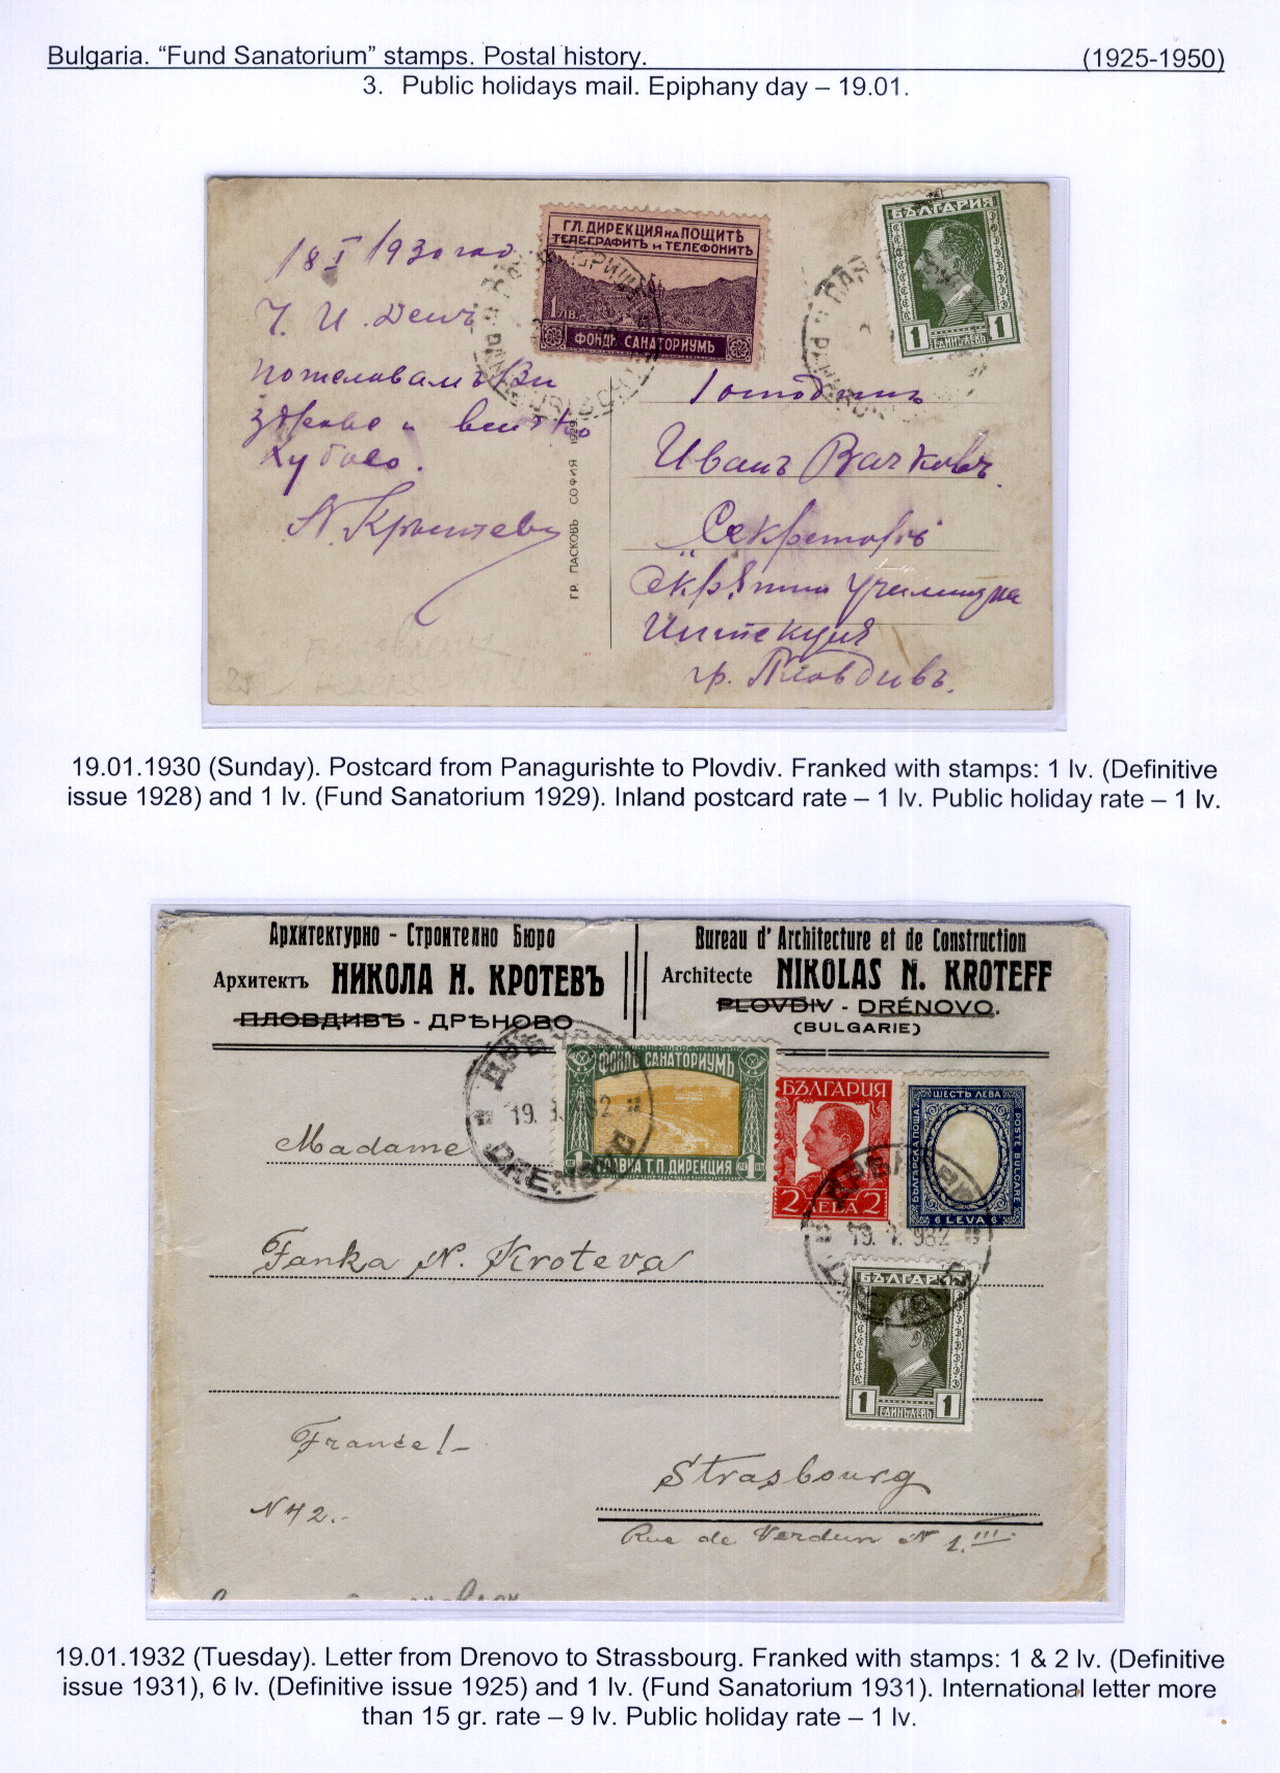 Bulgaria. “Fund Sanatorium” stamps. Postal history. (1925-1950)
3. Public holidays mail. Epiphany day – 19.01.
ГЛ. ДИРЕКЦИЯ НА ПОЩИТѢ
ТЕЛЕГРАФИТѢ И ТЕЛЕФОНИТѢ
1 ЛВ.
ФОНДЪ САНАТОРИУМЪ
БЪЛГАРИЯ
1 ЕДИНЪ ЛЕВЪ 1
18 I 1930 год
Ч. И. Денъ
пожелавамъ Ви
здраве и
хубаво.
Господинъ
Иванъ Вачковъ
Секретарь
училищна
гр. Пловдивъ.
ГР. ПАСКОВЪ СОФИЯ 1929
19.01.1930 (Sunday). Postcard from Panagurishte to Plovdiv. Franked with stamps: 1 lv. (Definitive
issue 1928) and 1 lv. (Fund Sanatorium 1929). Inland postcard rate – 1 lv. Public holiday rate – 1 lv.
Архитектурно - Строително Бюро
Архитектъ НИКОЛА Н. КРОТЕВЪ
ПЛОВДИВЪ - ДРѢНОВО
Bureau d' Architecture et de Construction
Architecte NIKOLAS N. KROTEFF
PLOVDIV - DRÉNOVO.
(BULGARIE)
ФОНДЪ САНАТОРИУМЪ
1 ГЛАВНА Т.П. ДИРЕКЦИЯ 1
БЪЛГАРИЯ
2 ЛЕВА 2
ШЕСТЬ ЛЕВА
БЪЛГАРСКА ПОЩА
POSTE BULGARE
6 LEVA 6
19. 1. 932
DRENOVO
19. 1. 932
БЪЛГАРИЯ
1 ЕДИНЪ ЛЕВЪ 1
Madame
Fanka N. Kroteva
France!-
N 42.-
Strasbourg
Rue de Verdun N 1.III.
19.01.1932 (Tuesday). Letter from Drenovo to Strassbourg. Franked with stamps: 1 & 2 lv. (Definitive
issue 1931), 6 lv. (Definitive issue 1925) and 1 lv. (Fund Sanatorium 1931). International letter more
than 15 gr. rate – 9 lv. Public holiday rate – 1 lv.